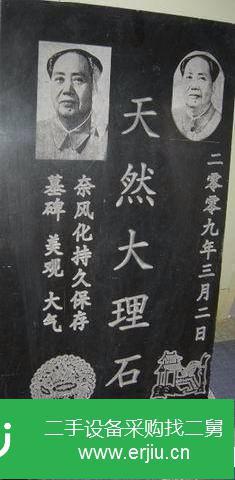 天然大理石
二零零九年三月二日
奈风化持久保存
墓碑 美观 大气
二手设备采购找二舅
www.erjiu.cn